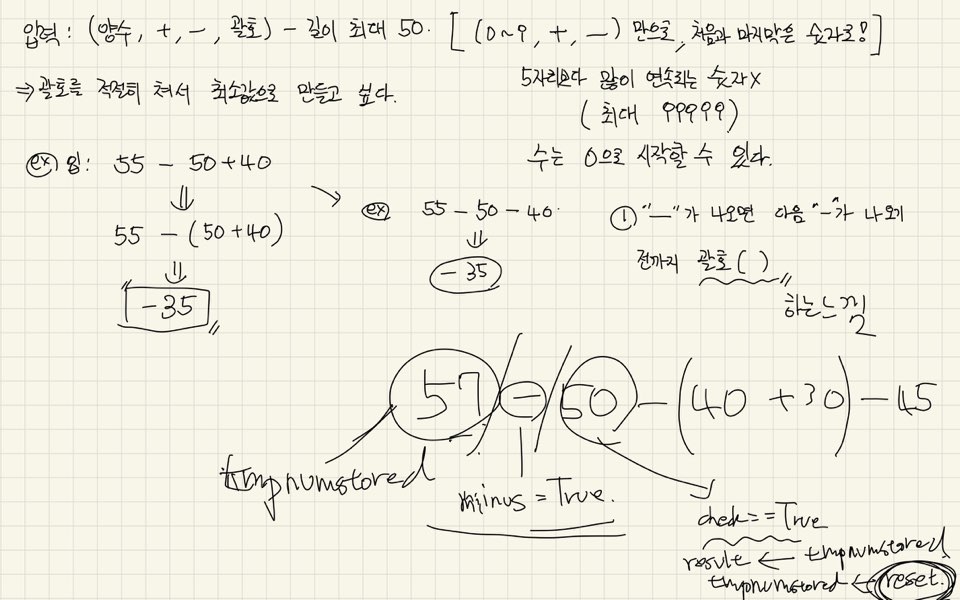 입력 : (양수, +, -, 괄호) - 길이 최대 50. [ (0~9, +, -) 만으로, 처음과 마지막은 숫자로! ]
⇒ 괄호를 적절히 쳐서 최소값으로 만들고 싶다.
5자리보다 많이 연속되는 숫자 X
( 최대 99999 )
수는 0으로 시작할 수 있다.
ex) 입: 55 - 50 + 40
⇓
55 - (50+40)
⇓
"-35"
→ ex 55 - 50 - 40.
⇓
-35
① "-"가 나오면 다음 "-"가 나오기
전까지 괄호 ( )
하는 느낌
57 / - / 50 - (40 + 30) - 45
tmpnumstored
minus = True.
check == True
result ← tmpnumstored
tmpnumstored ← reset.